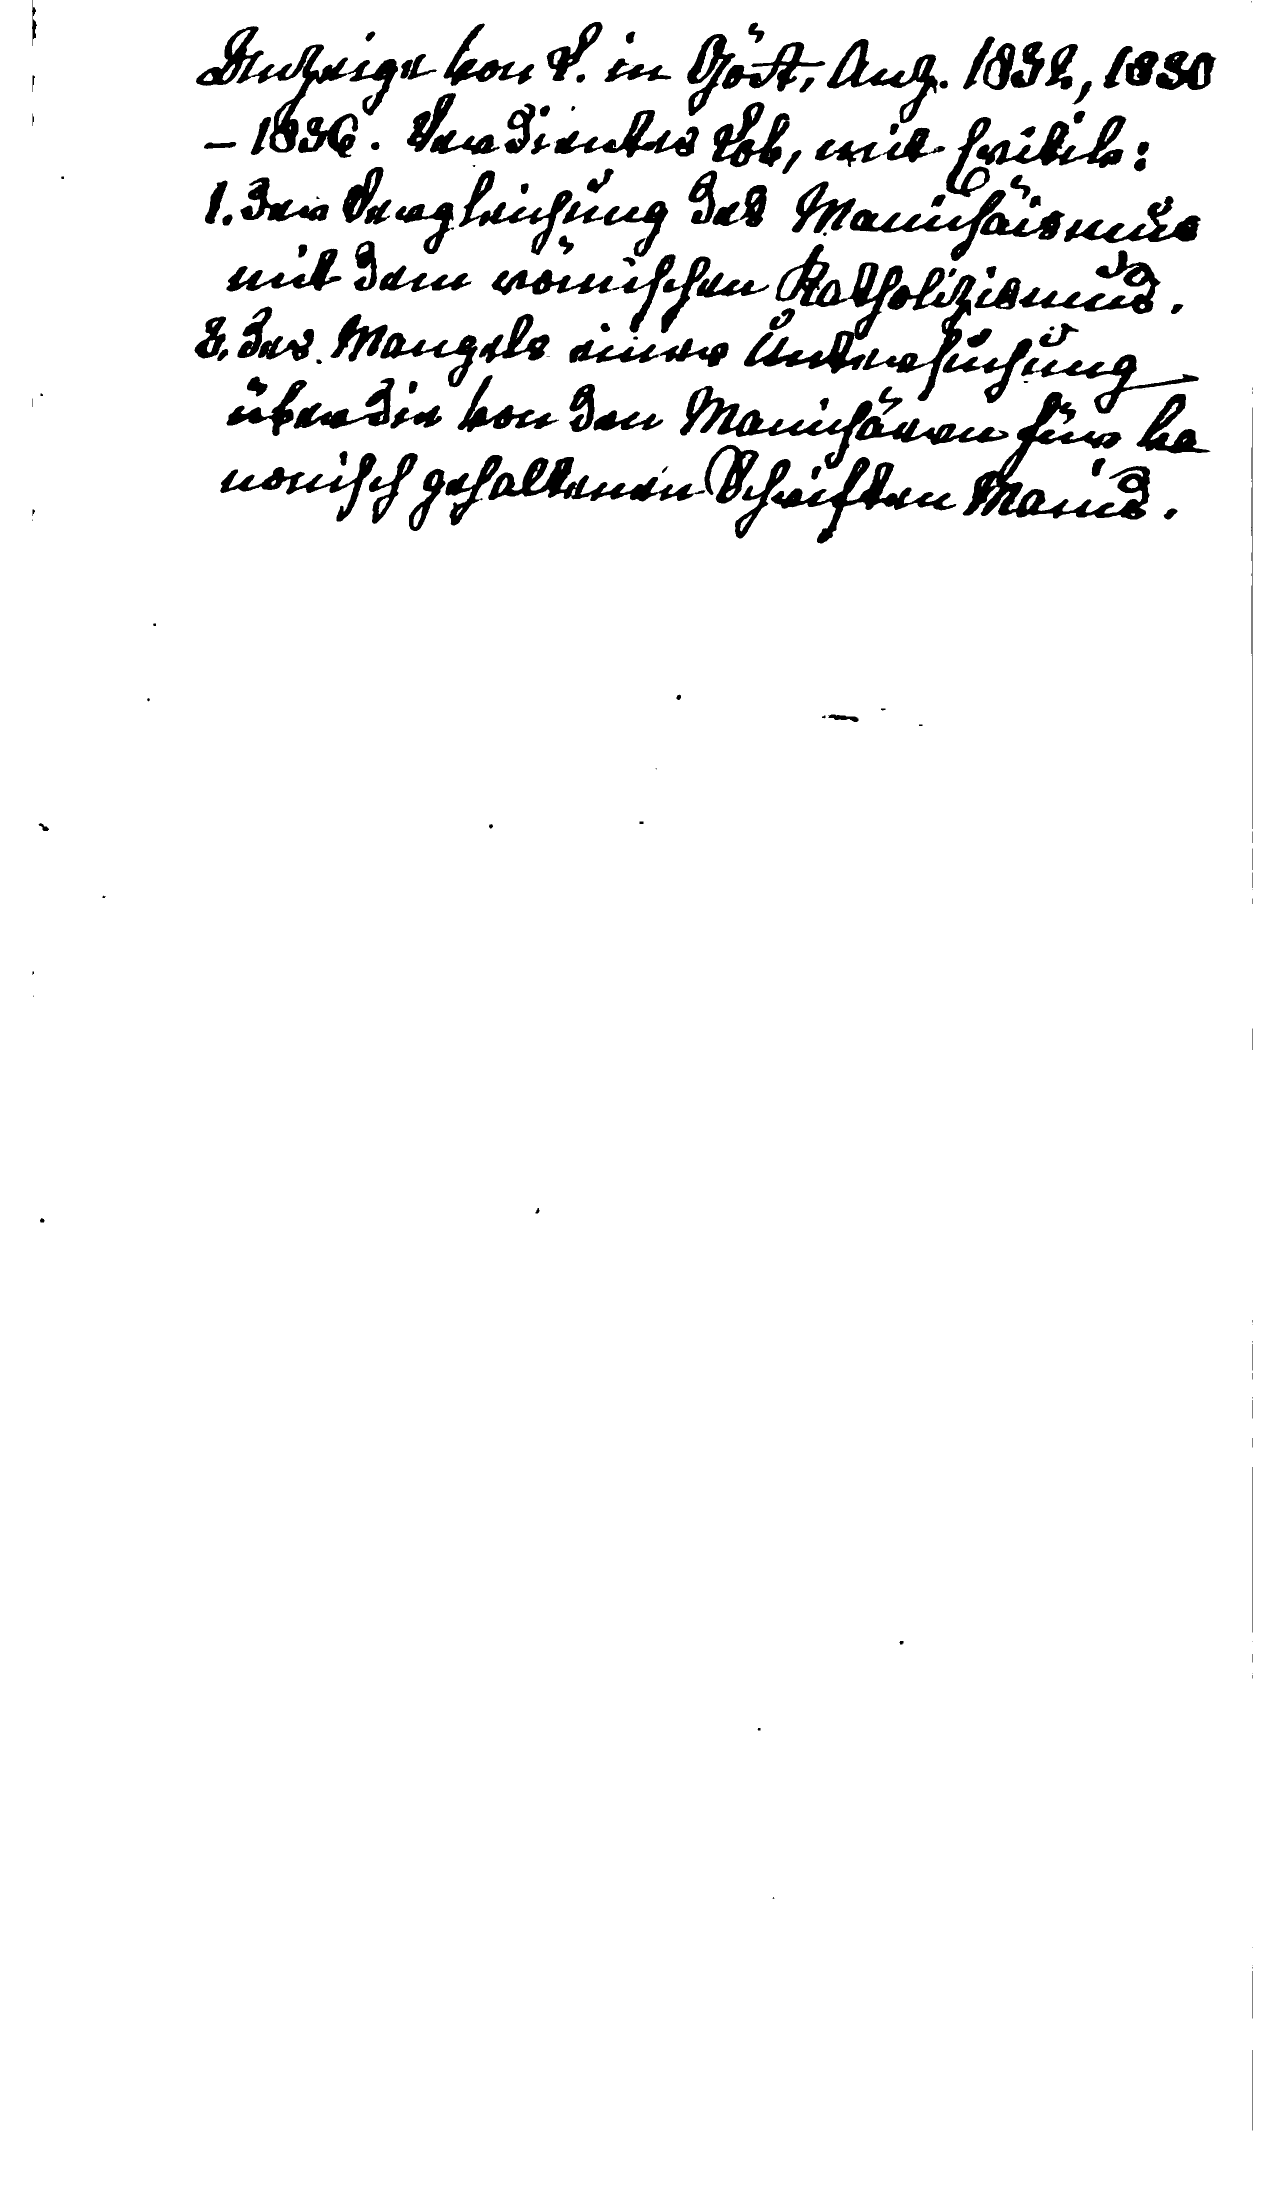 Anzeige von L. in Gött. Anz. 1832, 1830
– 1836. Verdientes Lob, mit Kritik:
1. der Vergleichung des Manichäismus
mit dem römischen Katholizismus.
2. des Mangels einer Untersuchung
über die von den Manichäern für ka
nonisch gehaltenen Schriften Manis.